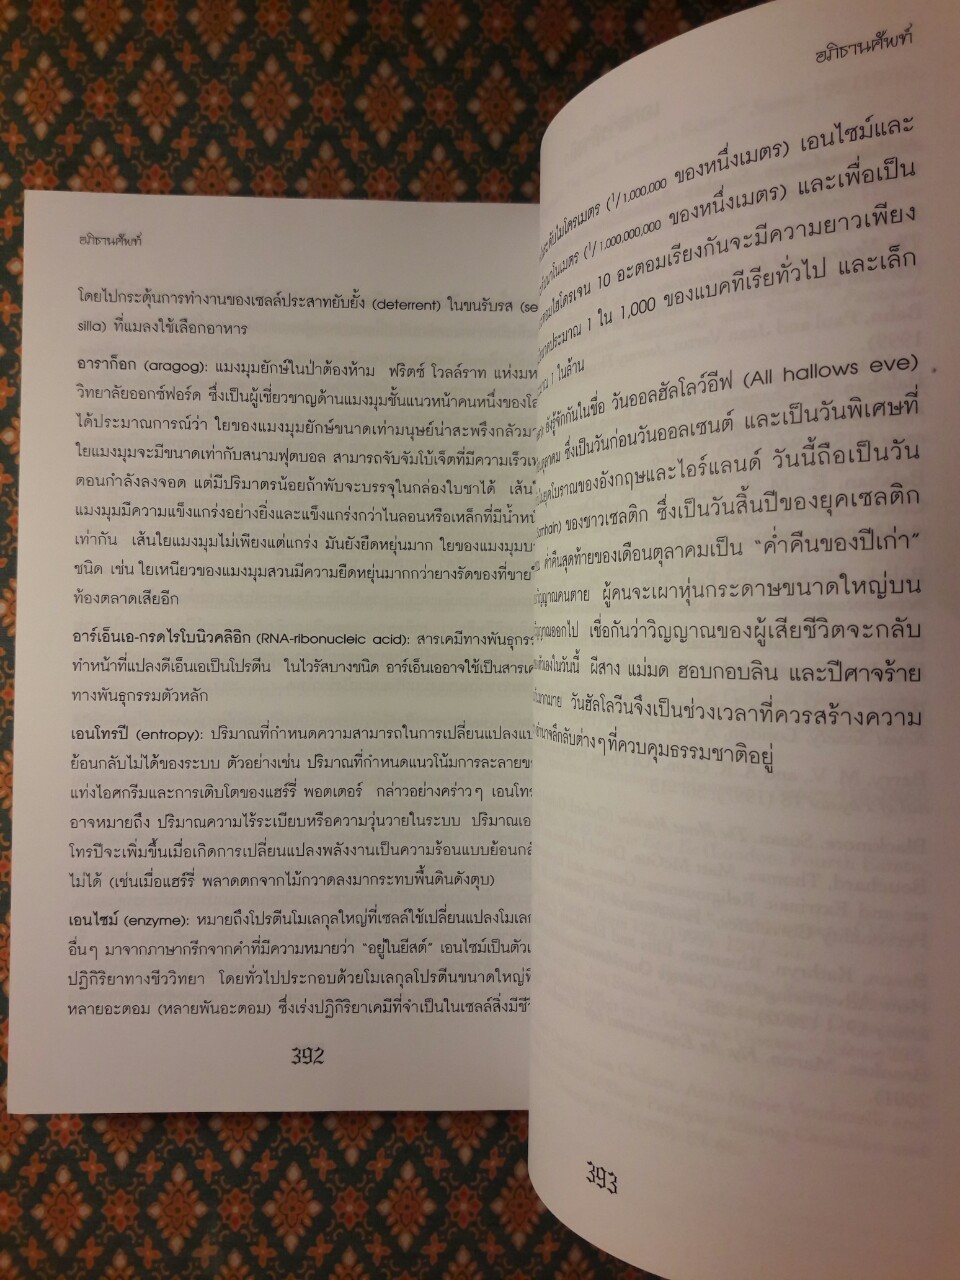 อภิธานศัพท์
โดยไปกระตุ้นการทำงานของเซลล์ประสาทยับยั้ง (deterrent) ในขนรับรส (se
silla) ที่แมลงใช้เลือกอาหาร
อาราก็อก (aragog): แมงมุมยักษ์ในป่าต้องห้าม ฟริตซ์ โวลล์ราท แห่งมห
วิทยาลัยออกซ์ฟอร์ด ซึ่งเป็นผู้เชี่ยวชาญด้านแมงมุมชั้นแนวหน้าคนหนึ่งของโล
ได้ประมาณการณ์ว่า ใยของแมงมุมยักษ์ขนาดเท่ามนุษย์น่าสะพรึงกลัวมา
ใยแมงมุมจะมีขนาดเท่ากับสนามฟุตบอล สามารถจับจัมโบ้เจ็ตที่มีความเร็วเท
ตอนกำลังลงจอด แต่มีปริมาตรน้อยถ้าพับจะบรรจุในกล่องใบชาได้ เส้นใ
แมงมุมมีความแข็งแกร่งอย่างยิ่งและแข็งแกร่งกว่าไนลอนหรือเหล็กที่มีน้ำหน
เท่ากัน เส้นใยแมงมุมไม่เพียงแต่แกร่ง มันยังยืดหยุ่นมาก ใยของแมงมุมบา
ชนิด เช่น ใยเหนียวของแมงมุมสวนมีความยืดหยุ่นมากกว่ายางรัดของที่ขายใ
ท้องตลาดเสียอีก
อาร์เอ็นเอ-กรดไรโบนิวคลิอิก (RNA-ribonucleic acid): สารเคมีทางพันธุกรร
ทำหน้าที่แปลงดีเอ็นเอเป็นโปรตีน ในไวรัสบางชนิด อาร์เอ็นเออาจใช้เป็นสารเค
ทางพันธุกรรมตัวหลัก
เอนโทรปี (entropy): ปริมาณที่กำหนดความสามารถในการเปลี่ยนแปลงแบ
ย้อนกลับไม่ได้ของระบบ ตัวอย่างเช่น ปริมาณที่กำหนดแนวโน้มการละลายขอ
แท่งไอศกรีมและการเติบโตของแฮร์รี่ พอตเตอร์ กล่าวอย่างคร่าวๆ เอนโทร
อาจหมายถึง ปริมาณความไร้ระเบียบหรือความวุ่นวายในระบบ ปริมาณเอ
โทรปีจะเพิ่มขึ้นเมื่อเกิดการเปลี่ยนแปลงพลังงานเป็นความร้อนแบบย้อนกลั
ไม่ได้ (เช่นเมื่อแฮร์รี่ พลาดตกจากไม้กวาดลงมากระทบพื้นดินดังตุบ)
เอนไซม์ (enzyme): หมายถึงโปรตีนโมเลกุลใหญ่ที่เซลล์ใช้เปลี่ยนแปลงโมเลก
อื่นๆ มาจากภาษากรีกจากคำที่มีความหมายว่า “อยู่ในยีสต์” เอนไซม์เป็นตัวเ
ปฏิกิริยาทางชีววิทยา โดยทั่วไปประกอบด้วยโมเลกุลโปรตีนขนาดใหญ่
หลายอะตอม (หลายพันอะตอม) ซึ่งเร่งปฏิกิริยาเคมีที่จำเป็นในเซลล์สิ่งมีชี
392
อภิธานศัพท์
ระดับไมโครเมตร (1/1,000,000 ของหนึ่งเมตร) เอนไซม์และ
นาโนเมตร (1/1,000,000,000 ของหนึ่งเมตร) และเพื่อเป็น
ไฮโดรเจน 10 อะตอมเรียงกันจะมีความยาวเพียง
ประมาณ 1 ใน 1,000 ของแบคทีเรียทั่วไป และเล็ก
1 ในล้าน
ยังรู้จักกันในชื่อ วันออลฮัลโลว์อีฟ (All hallows eve)
ซึ่งเป็นวันก่อนวันออลเซนต์ และเป็นวันพิเศษที่
โบราณของอังกฤษและไอร์แลนด์ วันนี้ถือเป็นวัน
ของชาวเซลติก ซึ่งเป็นวันสิ้นปีของยุคเซลติก
ค่ำคืนสุดท้ายของเดือนตุลาคมเป็น “ค่ำคืนของปีเก่า”
วิญญาณคนตาย ผู้คนจะเผาหุ่นกระดาษขนาดใหญ่บน
ออกไป เชื่อกันว่าวิญญาณของผู้เสียชีวิตจะกลับ
ในวันนี้ ผีสาง แม่มด ฮอบกอบลิน และปีศาจร้าย
มากมาย วันฮัลโลวีนจึงเป็นช่วงเวลาที่ควรสร้างความ
อำนาจลึกลับต่างๆที่ควบคุมธรรมชาติอยู่
393